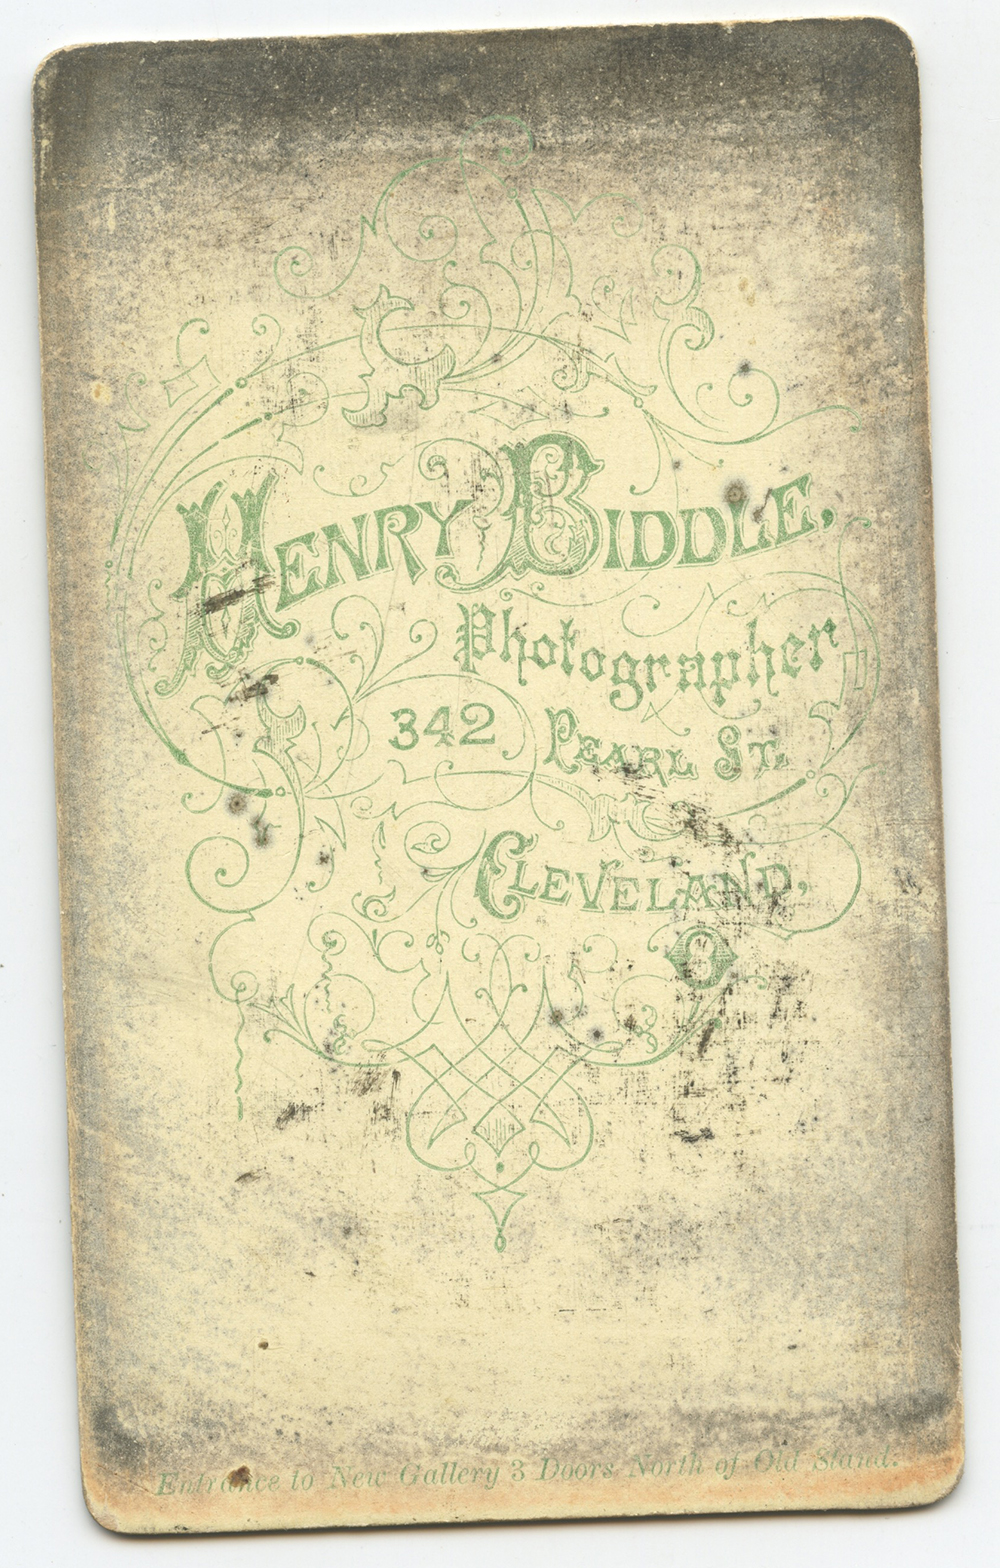 HENRY BIDDLE,
Photographer
342 PEARL ST.
CLEVELAND,
O
Entrance to New Gallery 3 Doors North of Old Stand.